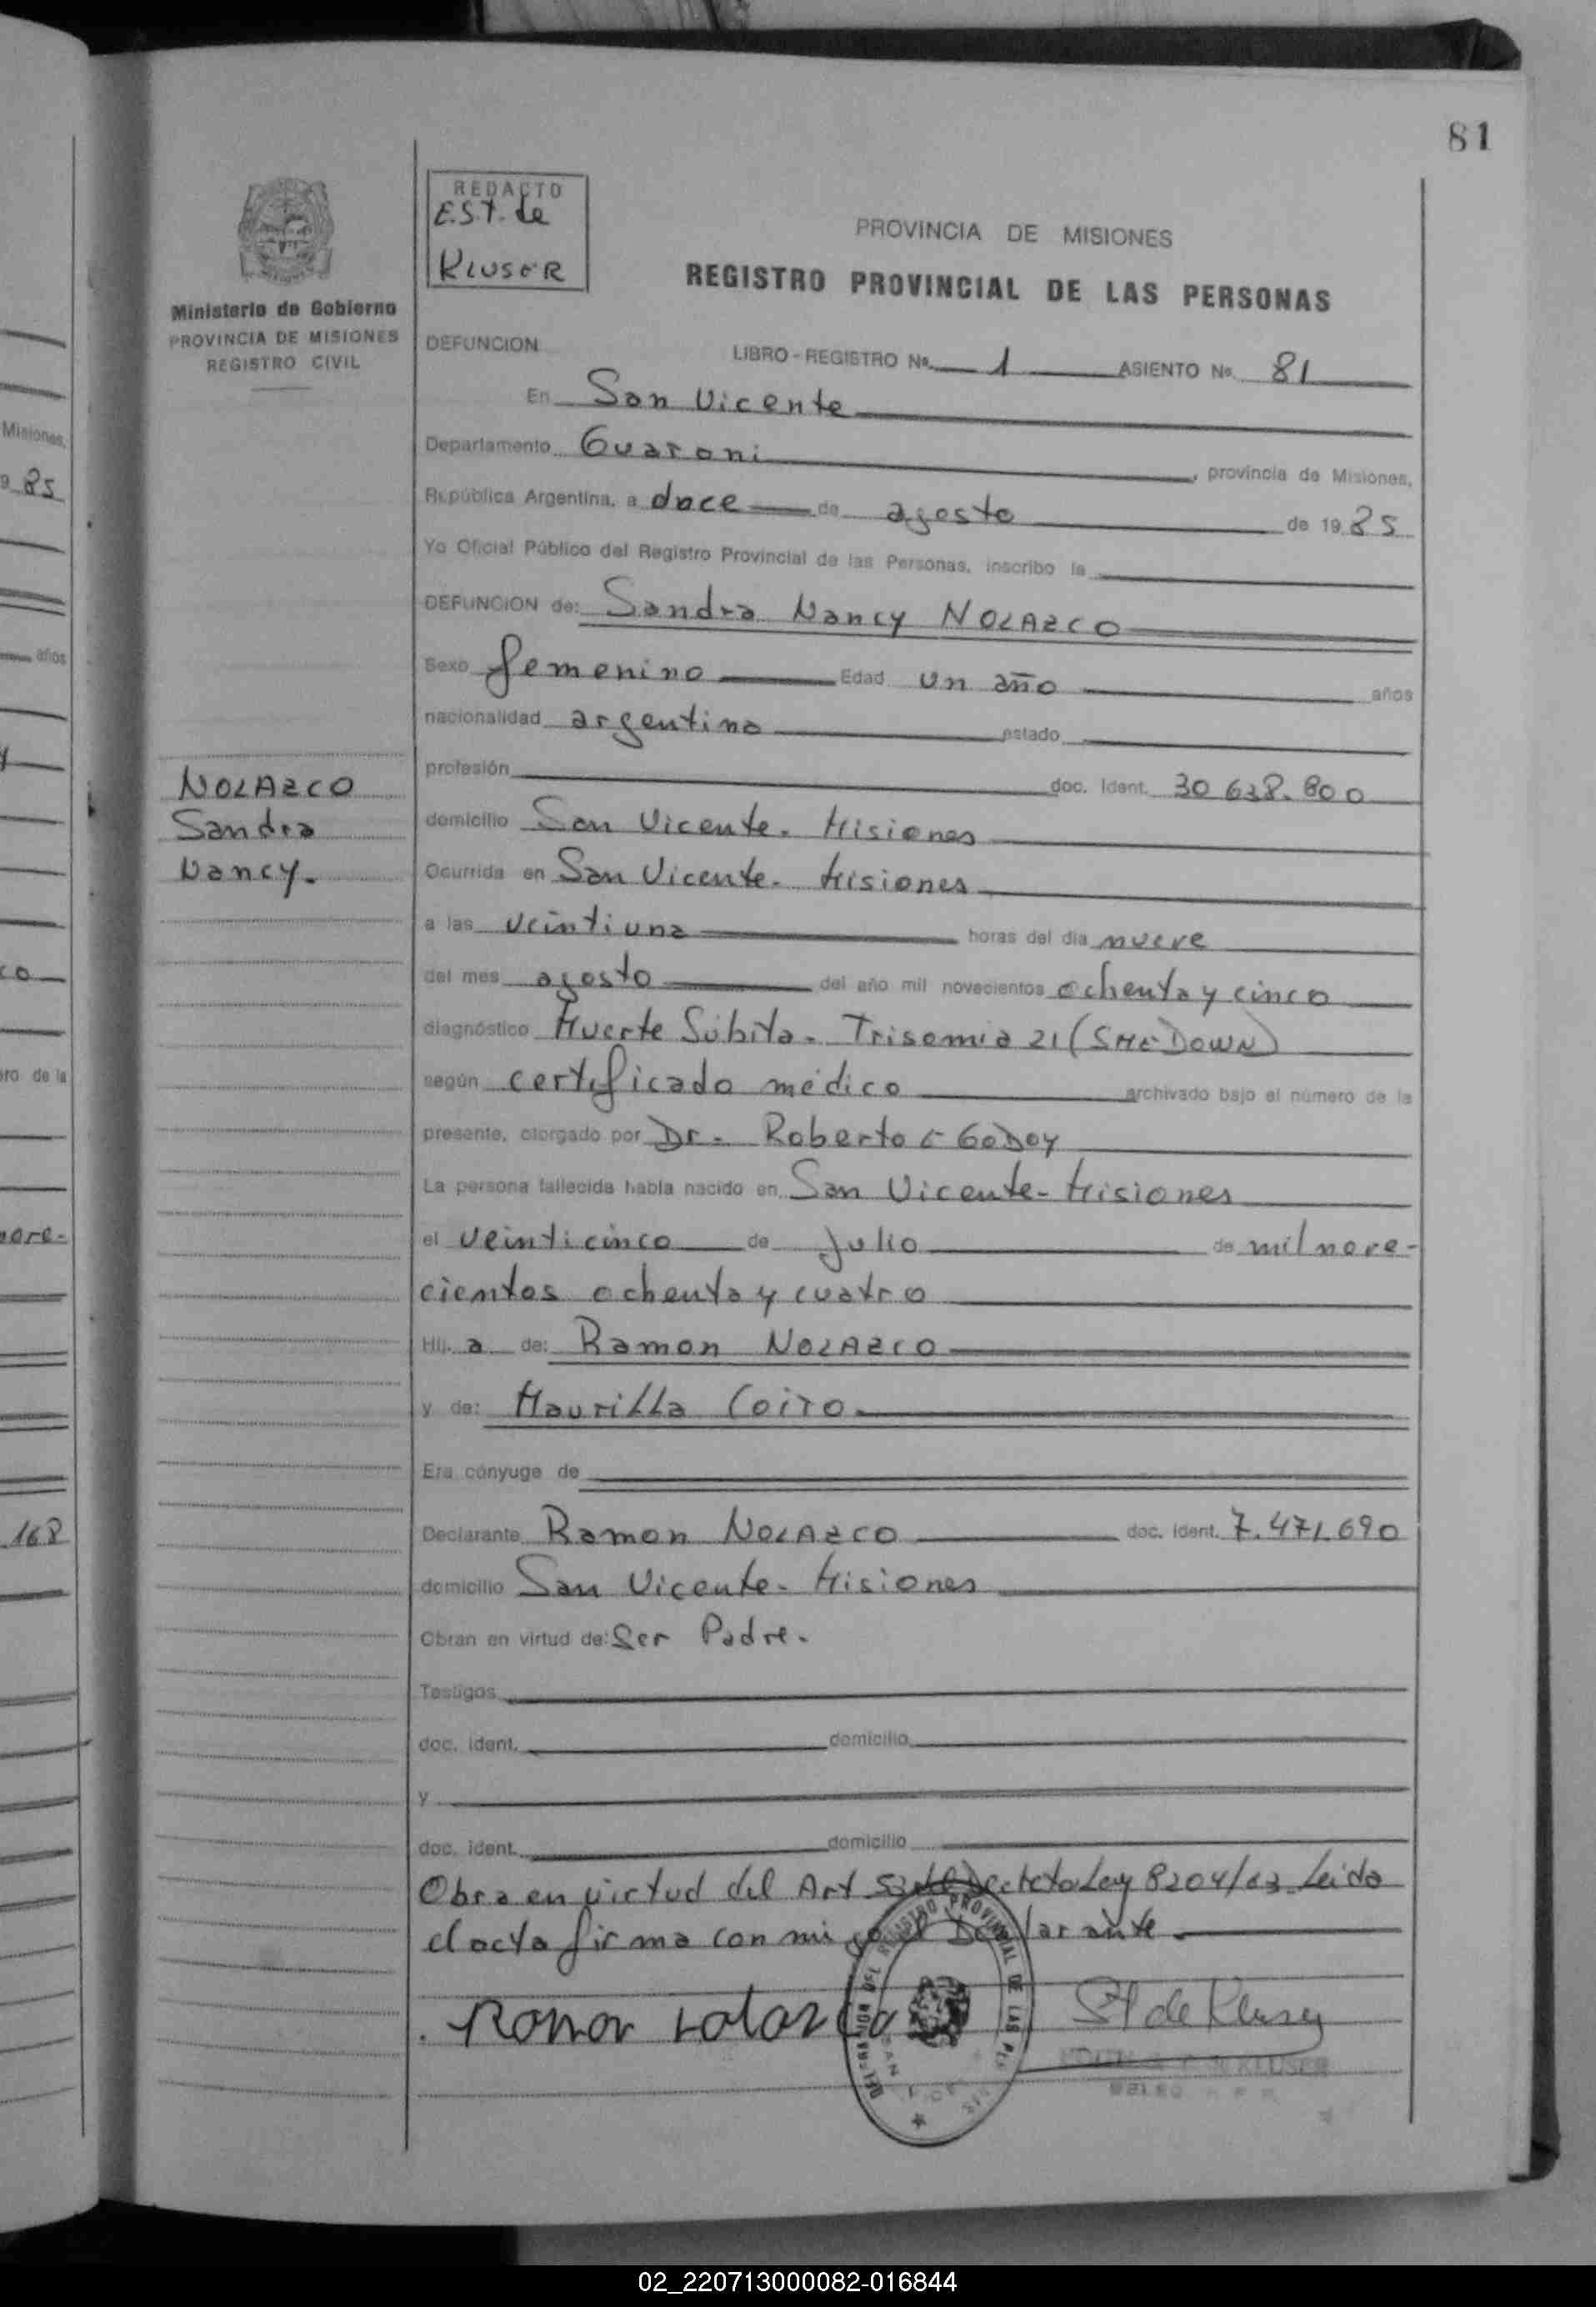 81
REDACTO
E.S.T. de
KLUSER
PROVINCIA DE MISIONES
REGISTRO PROVINCIAL DE LAS PERSONAS
Ministerio de Gobierno
PROVINCIA DE MISIONES
REGISTRO CIVIL
DEFUNCION
LIBRO-REGISTRO No. 1 ASIENTO No. 81
En San Vicente
Departamento Guarani, provincia de Misiones,
República Argentina, a doce de agosto de 1985
Yo Oficial Público del Registro Provincial de las Personas, inscribo la
DEFUNCION de: Sandra Nancy NOLAZCO
Sexo femenino Edad un año años
nacionalidad argentina estado
profesión doc. ident. 30 638.800
NOLAZCO
Sandra
Nancy.
domicilio San Vicente. Misiones
Ocurrida en San Vicente. Misiones
a las veintiuna horas del dia nueve
del mes agosto del año mil novecientos ochenta y cinco
diagnóstico Muerte Súbita. Trisomia 21 (SME DOWN)
según certificado médico archivado bajo el número de la
presente, otorgado por Dr. Roberto C Godoy
La persona fallecida habia nacido en San Vicente-Misiones
el veinticinco de Julio de mil nove-
cientos ochenta y cuatro
Hij a de: Ramon NOLAZCO
y de: Maurilla Coito.
Era cónyuge de
Declarante Ramon NOLAZCO doc. ident. 7.471.690
domicilio San Vicente-Misiones
Obran en virtud de: Ser Padre.
Testigos
doc. ident. domicilio
y
doc. ident. domicilio
Obra en virtud del Art Decreto Ley 8204/63 Leida
el acta firma con mi go el Declarante.
Ramon Lolazco
ST de Kluser
KLUSER
Misiones,
9 85
años
co
ro de la
nove-
168
02_220713000082-016844